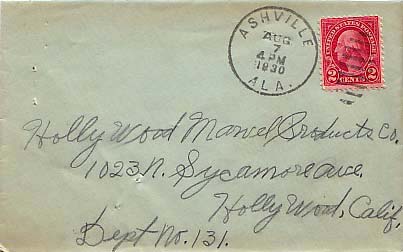 ASHVILLE
AUG
7
4 PM
1930
ALA.
UNITED STATES POSTAGE
2 CENTS 2
Holly Wood Marvel Products Co.
1023 N. Sycamore ave.
Holly Wood, Calif,
Dept No. 131.